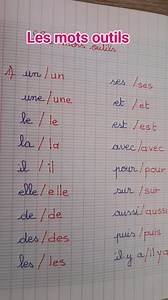 Les mots outils
mots outils
un / un
une / une
le / le
la / la
il / il
elle / elle
de / de
des / des
les / les
ses / ses
et / et
est / est
avec / avec
pour / pour
sur / sur
aussi / aussi
puis / puis
il y a / il y a